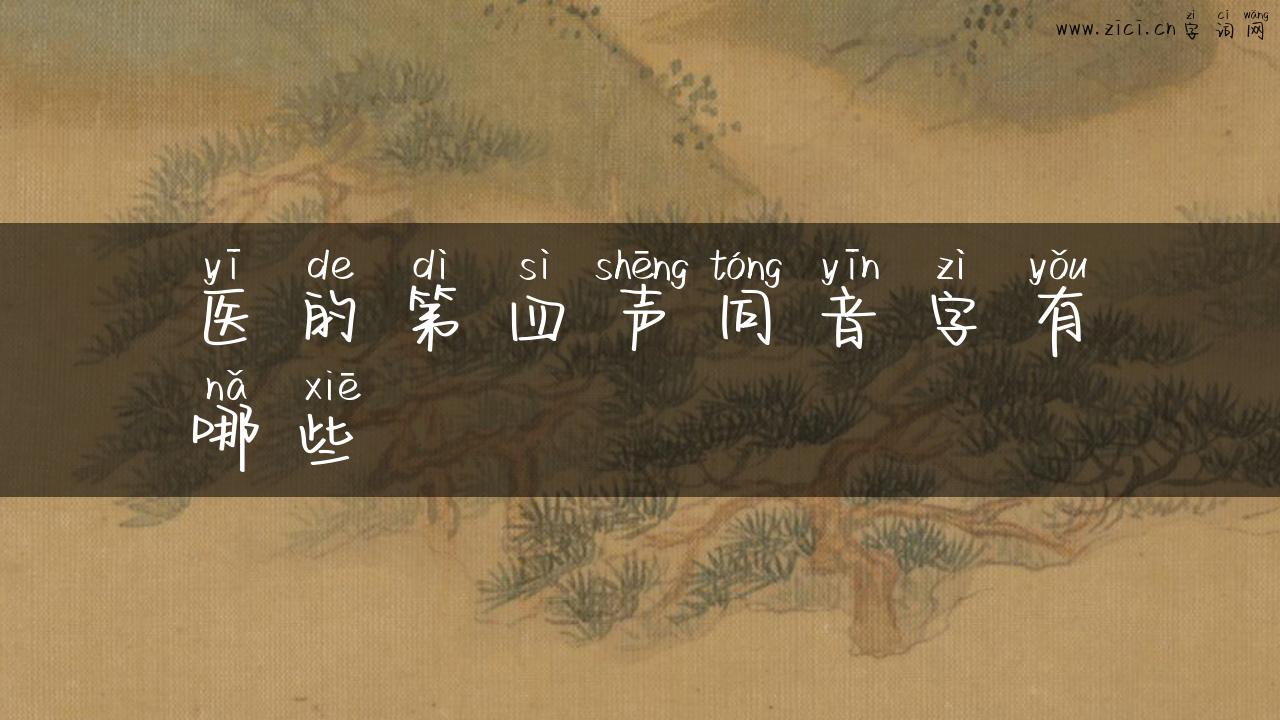 zì cí wǎng
www.zici.cn 字词网
yī de dì sì shēng tóng yīn zì yǒu
医的第四声同音字有
nǎ xiē
哪些